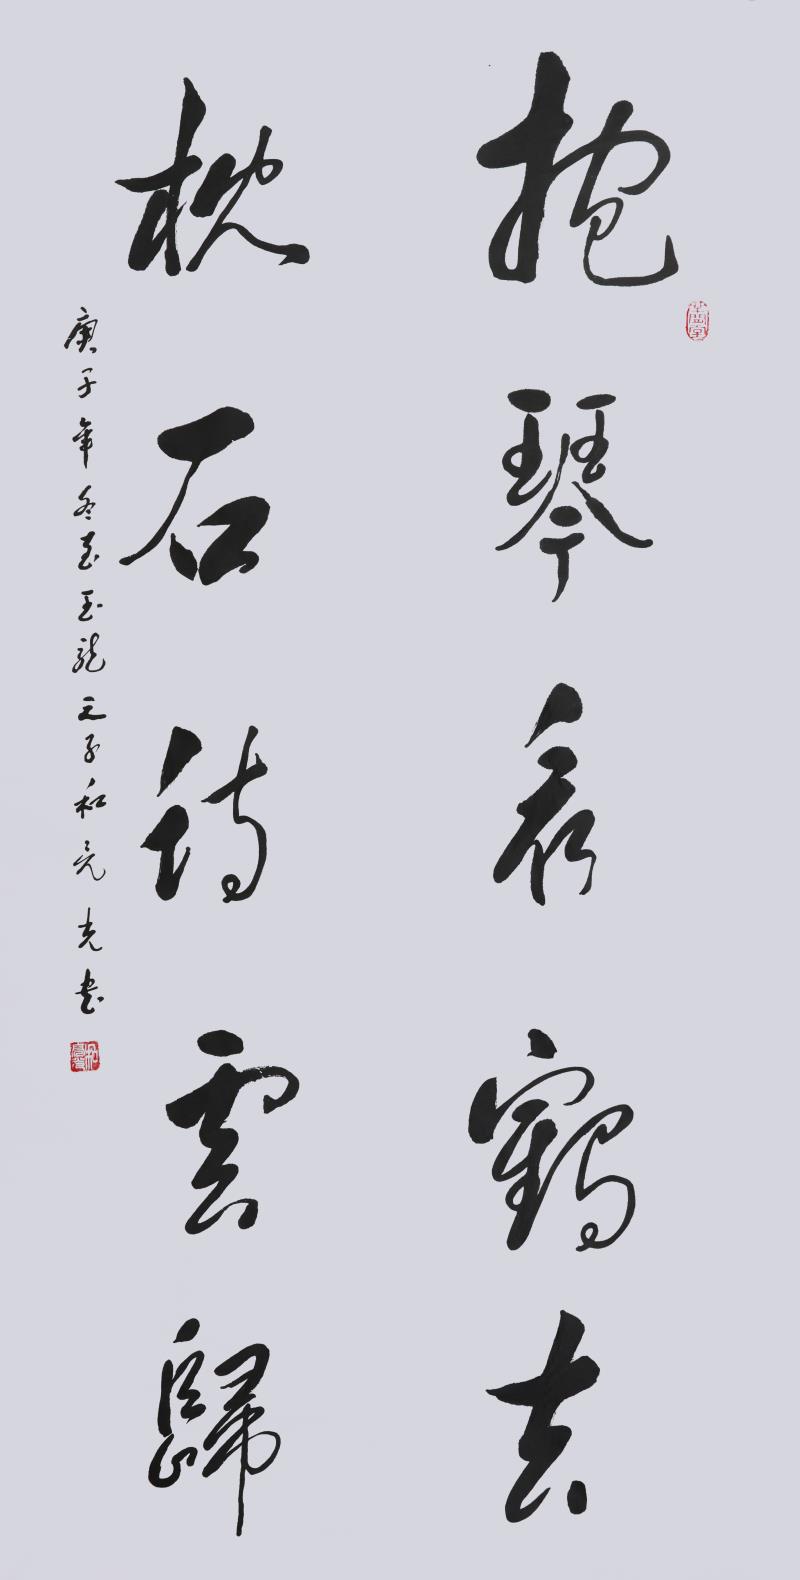 抱琴看鶴去
枕石待雲歸
庚子年冬至玉龍三子和亮光書